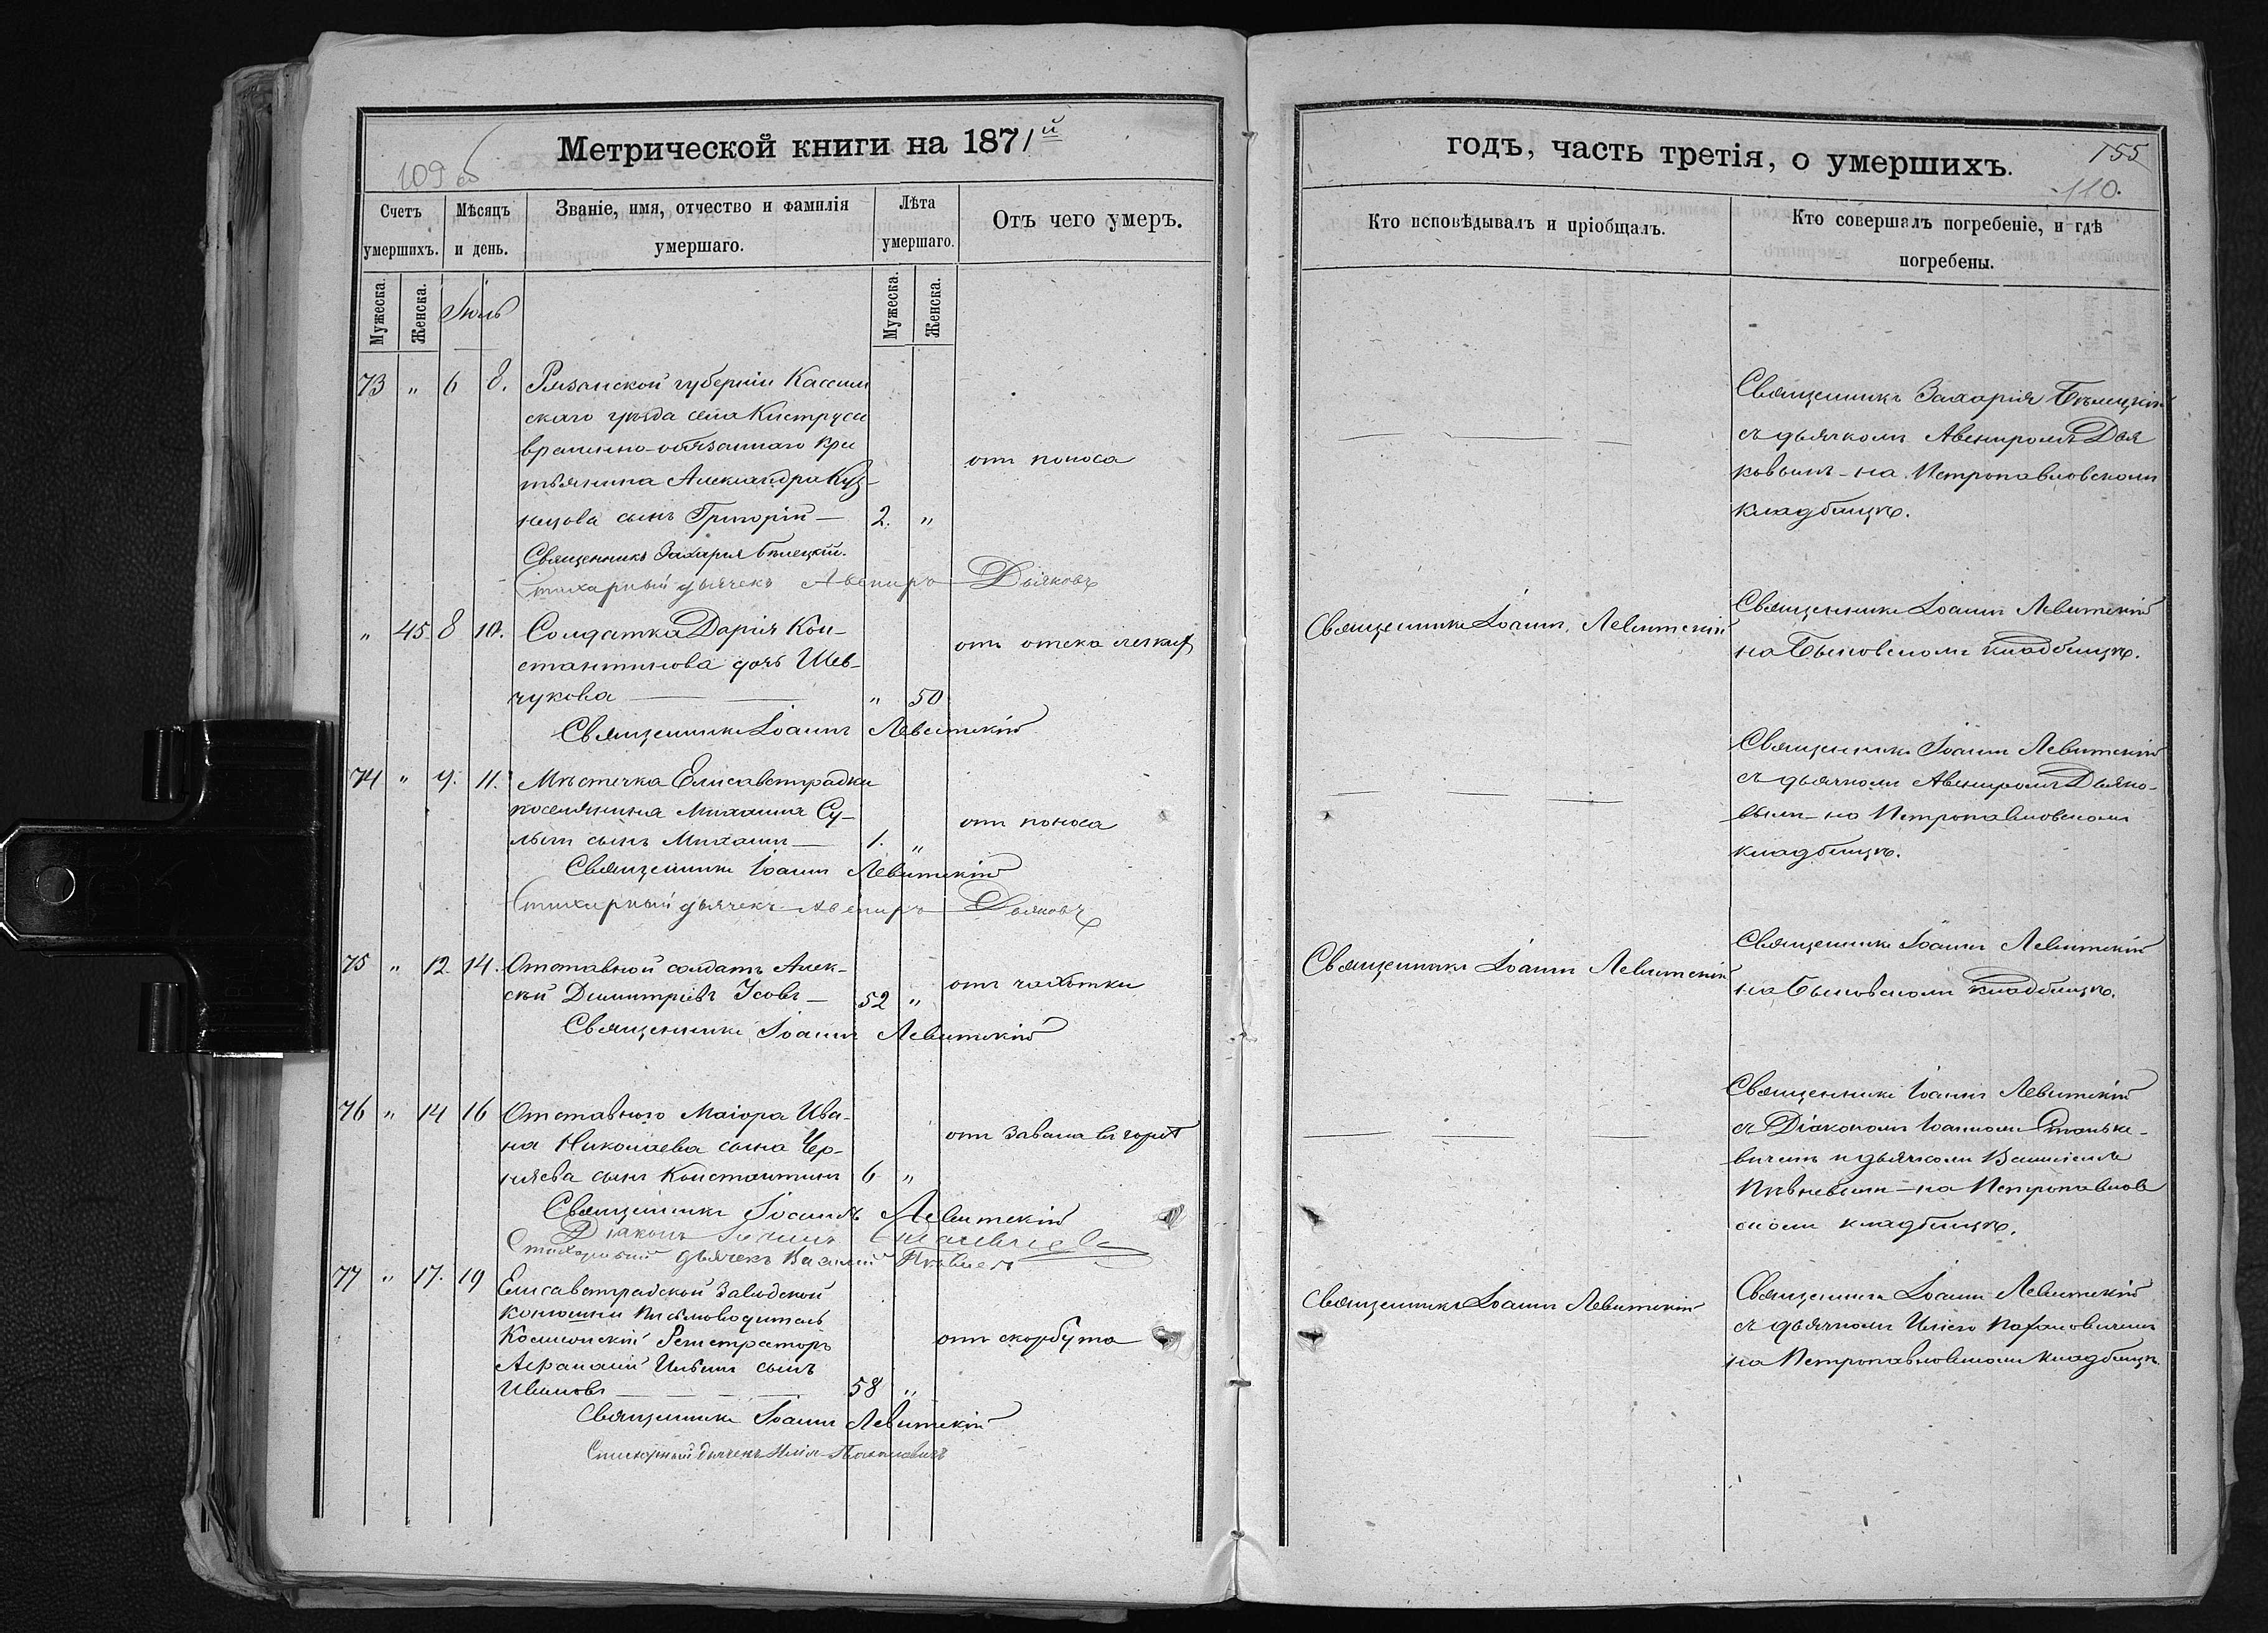 Метрической книги на 1871й
109 об
Счетъ умершихъ.
Мѣсяцъ и день.
Званіе, имя, отчество и фамилія умершаго.
Лѣта умершаго.
Отъ чего умеръ.
Мужеска.
Женска.
Іюль
Мужеска.
Женска.
73 " 6 8. Рязанской губерніи Кассим
скаго уѣзда села Киструса
временно-обязаннаго кре
стьянина Александра Куз-
отъ поноса
нецова сынъ Григорій — 2. "
Священникъ Захарія Бѣлецкій.
Стихарный дьячекъ Авениръ Дьяковъ
" 45 8 10. Солдатка Дарія Кон-
отъ отека легких
стантинова дочь Шев-
чукова — " 50
Священникъ Іоаннъ Левитскій
74 " 9. 11. Мѣстечка Елисаветградки
поселянина Михаила Су-
отъ поноса
сынъ Михаилъ — 1. "
Священникъ Іоаннъ Левитскій
Стихарный дьячекъ Авениръ Дьяковъ
75 " 12. 14. Отставной солдатъ Алек-
отъ чахотки
сѣй Димитріевъ Усовъ — 52 "
Священникъ Іоаннъ Левитскій
76 " 14 16 Отставного Маіора Ива-
отъ завала въ горлѣ
на Николаева сына Чер-
няева сынъ Константинъ 6 "
Священникъ Іоаннъ Левитскій
Діаконъ Іоаннъ
Стихарный дьячекъ Василій Пѣвневъ
77 " 17. 19 Елисаветградской Заводской
конюшни письмоводитель
Регистраторъ
отъ скорбута
сынъ
Ивановъ — 58 "
Священникъ Іоаннъ Левитскій
Стихарный дьячекъ Илія
годъ, часть третія, о умершихъ.
155
110.
Кто исповѣдывалъ и пріобщалъ.
Кто совершалъ погребеніе, и гдѣ
погребены.
Священникъ Захарія Бѣлецкій
съ дьячкомъ Авениромъ Дья
ковымъ - на Петропавловскомъ
кладбищѣ.
Священникъ Іоаннъ Левитскій
Священникъ Іоаннъ Левитскій
на Быковскомъ кладбищѣ.
Священникъ Іоаннъ Левитскій
съ дьячкомъ Авениромъ Дьяко-
вымъ - на Петропавловскомъ
кладбищѣ.
Священникъ Іоаннъ Левитскій
Священникъ Іоаннъ Левитскій
на Быковскомъ кладбищѣ.
Священникъ Іоаннъ Левитскій
съ Діакономъ Іоанномъ Станьке-
вичемъ и дьячкомъ Василіемъ
Пѣвневымъ - на Петропавлов
скомъ кладбищѣ.
Священникъ Іоаннъ Левитскій
Священникъ Іоаннъ Левитскій
съ дьячкомъ Иліею
на Петропавловскомъ кладбищѣ.